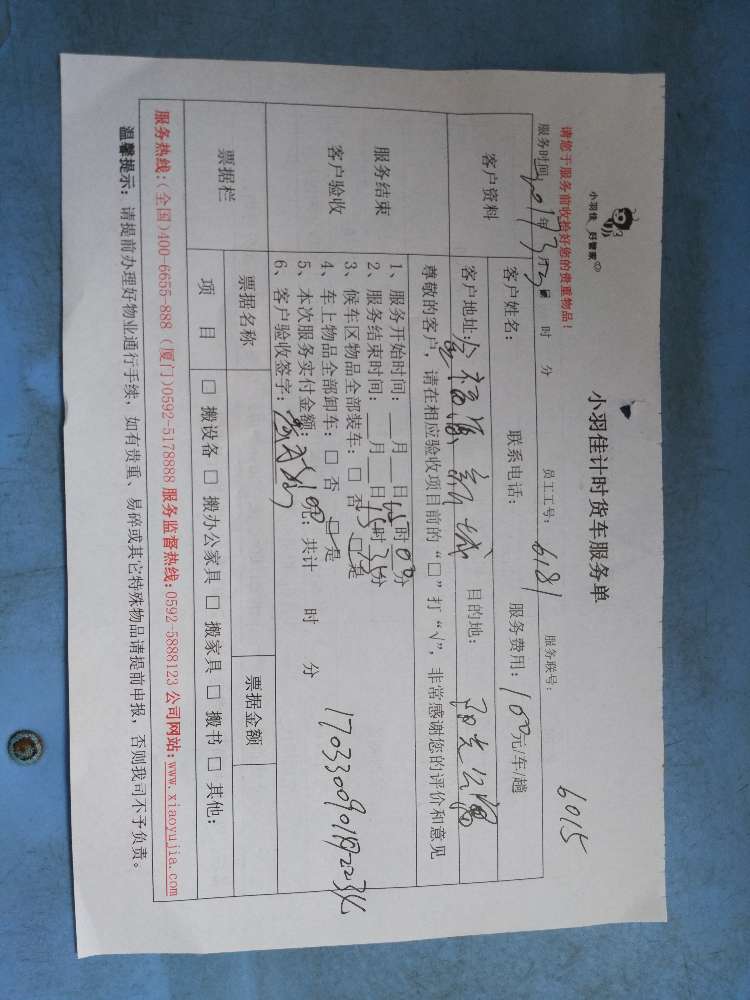 小羽佳 好管家
小羽佳计时货车服务单
6015
请您于服务前收拾好您的贵重物品！
服务时间: 年3月 时 分 员工工号: 6181 服务联号:
客户资料 客户姓名: 联系电话: 服务费用: 100元/车/趟
客户地址: 金福源新城 目的地: 阳光公寓
尊敬的客户，请在相应验收项目前的“□”打“√”，非常感谢您的评价和意见
服务结束
客户验收
1、服务开始时间: __月__日 时00分
2、服务结束时间: __月__日15时 分
3、候车区物品全部装车: □ 否 □ 是
4、车上物品全部卸车: □ 否 □ 是
5、本次服务实付金额: 元; 共计 时 分
6、客户验收签字:
票据栏 票据名称 票据金额
项 目 □ 搬设备 □ 搬办公家具 □ 搬家具 □ 搬书 □ 其他:
服务热线:(全国)400-6655-888 (厦门)0592-5178888 服务监督热线:0592-5888123 公司网站:www.xiaoyujia.com
温馨提示: 请提前办理好物业通行手续, 如有贵重、易碎或其它特殊物品请提前申报, 否则我司不予负责。